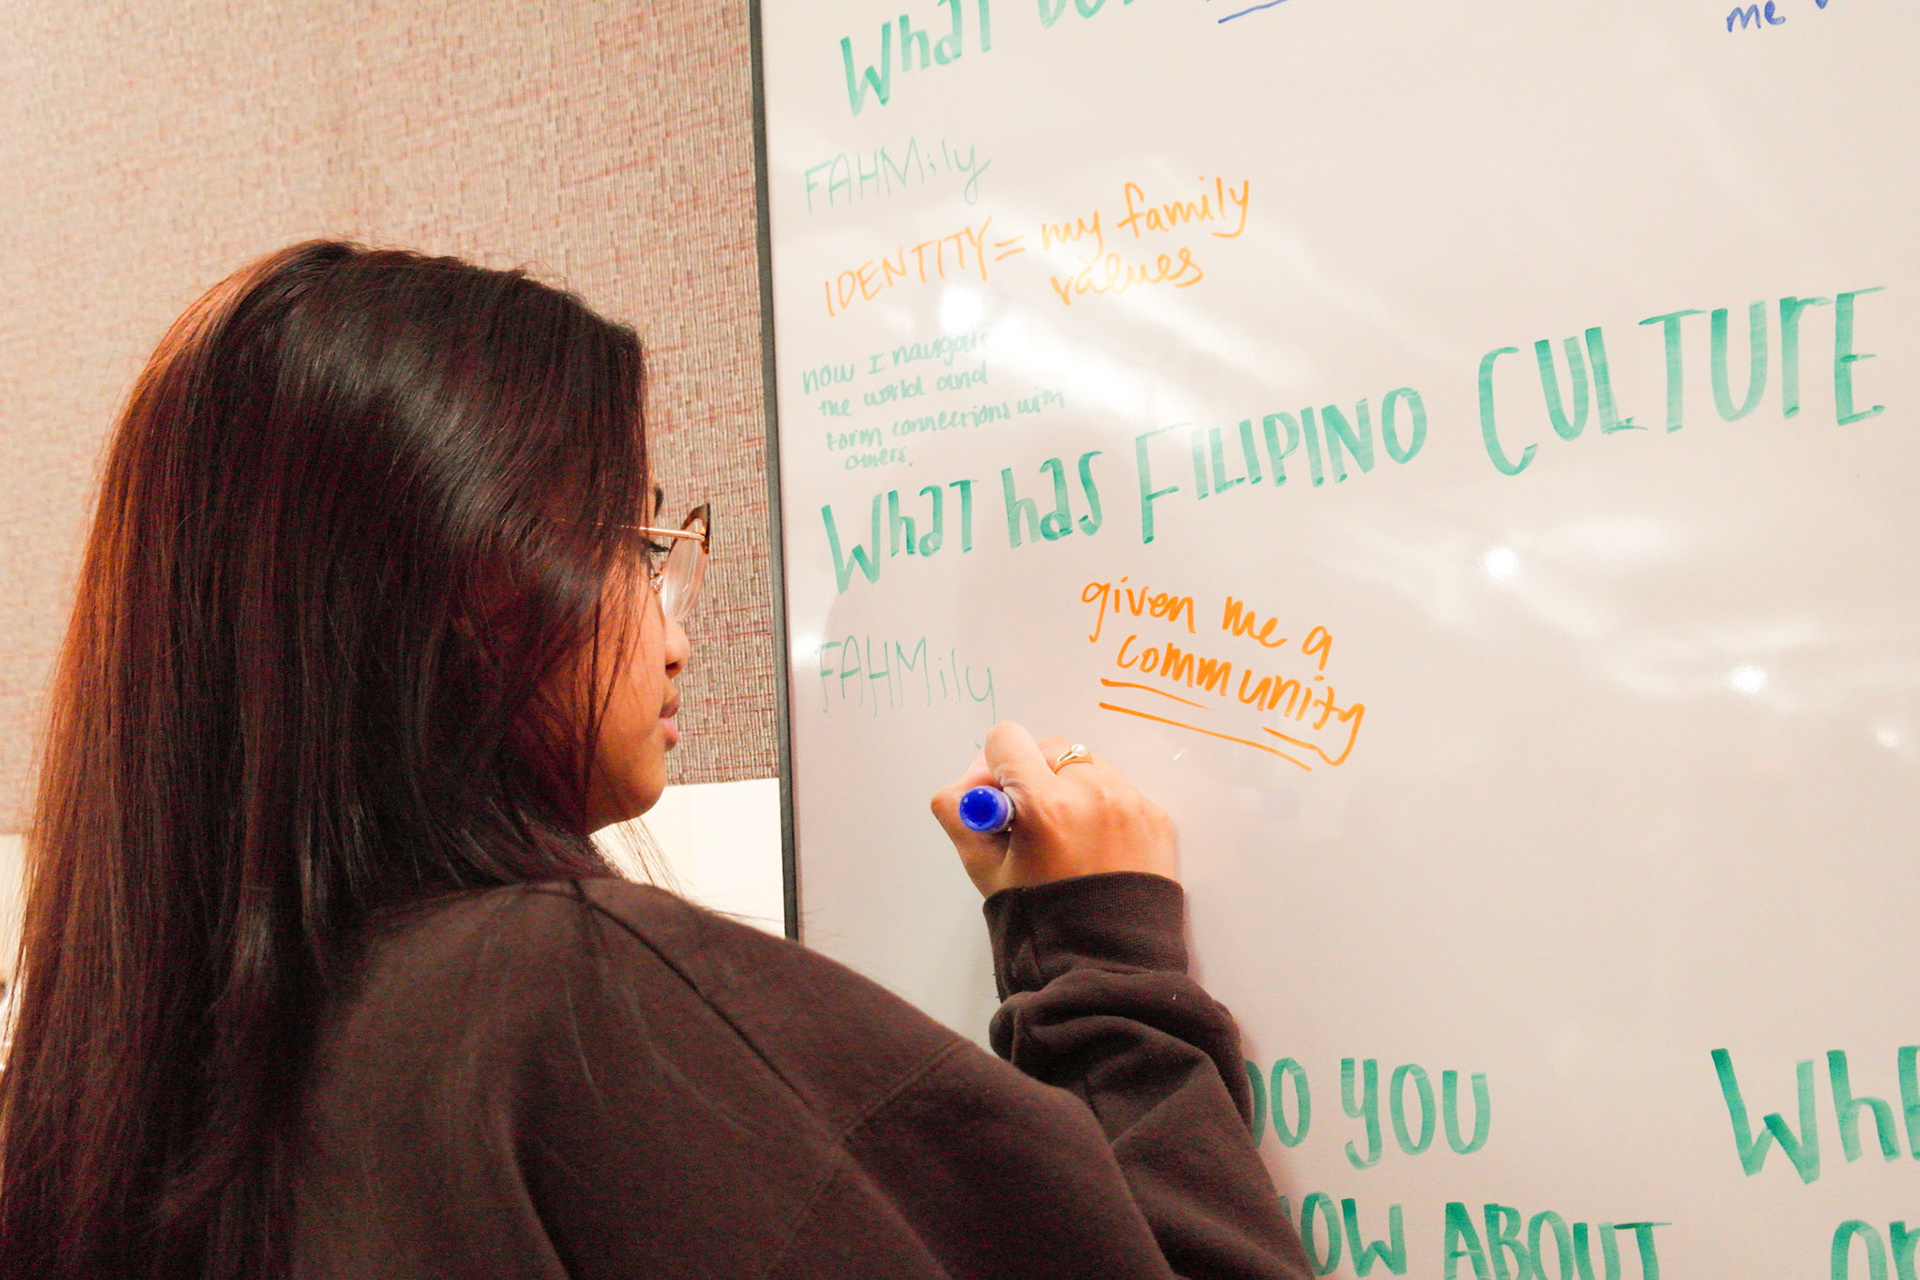 What
me
FAHMily
IDENTITY = my family
values
how I navigate
the world and
form connections with
others.
What has FILIPINO CULTURE
given me a
community
FAHMily
DO YOU
ABOUT